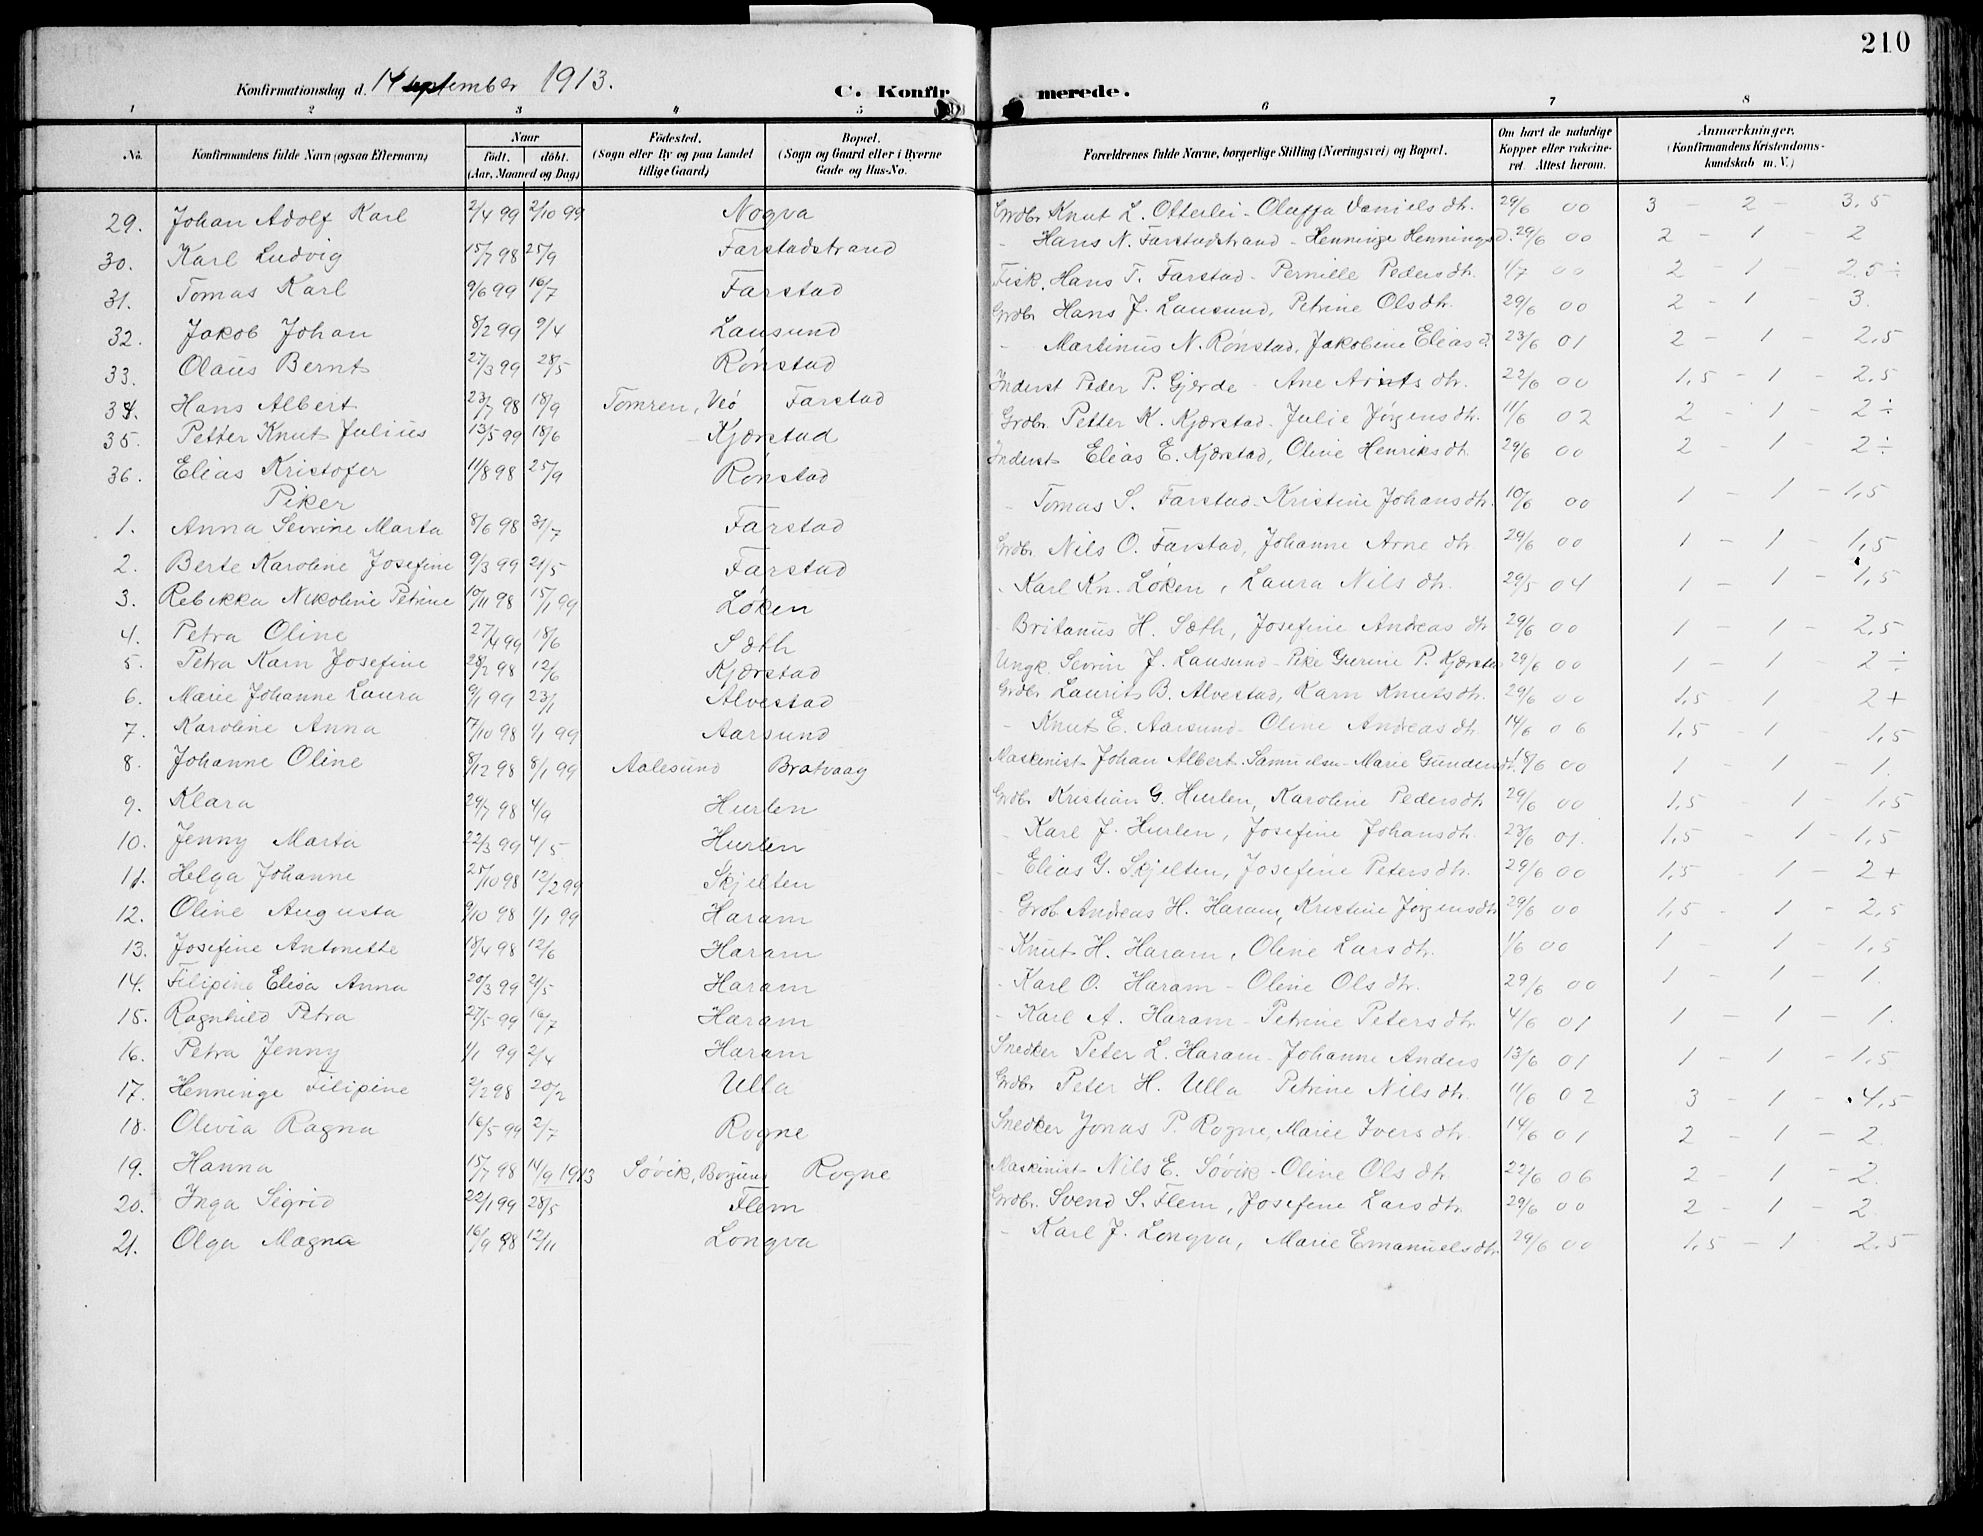 210
Konfirmationsdag d. 14 september 1913. C. Konfir merede.
1 2 3 4 5 6 7 8
No. Konfirmandens fulde Navn (ogsaa Efternavn) Naar födt. döbt. (Aar, Maaned og Dag) Födested. (Sogn eller By og paa Landet tillige Gaard) Bopæl. (Sogn og Gaard eller i Byerne Gade og Hus-No. Forældrenes fulde Navne, borgerlige Stilling (Næringsvei) og Bopæl. Om havt de naturlige Kopper eller vakcineret. Attest herom. Anmærkninger. (Konfirmandens Kristendomskundskab m. V.)
29. Johan Adolf Karl 2/4 99 2/10 99 Nogva Grdbr. Knut L. Otterlei - Oluffa Daniels dtr. 29/6 00 3 - 2 - 3,5
30. Karl Ludvig 15/7 98 25/9 Farstadstrand - Hans N. Farstadstrand - Henninge Hennings d. 29/6 00 2 - 1 - 2
31. Tomas Karl 9/6 99 16/7 Farstad Fisk. Hans T. Farstad - Pernille Peders dtr. 1/7 00 2 - 1 - 2,5 ÷
32. Jakob Johan 8/2 99 9/4 Lausund Grdbr Hans J. Lausund, Petrine Ols dtr. 29/6 00 2 - 1 - 3.
33. Olaus Bernt 27/3 99 28/5 Rönstad - Martinus N. Rönstad, Jakobine Elias d. 23/6 01 2 - 1 - 2,5
34. Hans Albert 23/7 98 18/9 Tomren, Veö Farstad Inderst Peder P. Gjerde - Ane Arnts dtr. 22/6 00 1,5 - 1 - 2,5
35. Petter Knut Julius 13/5 99 18/6 Kjærstad Grdbr. Petter K. Kjærstad - Julie Jørgens dtr. 11/6 02 2 - 1 - 2 ÷
36. Elias Kristofer 11/8 98 25/9 Rönstad Inderst Elias E. Kjærstad, Oline Henriks dtr. 29/6 00 2 - 1 - 2 ÷
Piker
1. Anna Sevrine Marta 8/6 98 31/7 Farstad - Tomas S. Farstad - Kristine Johans dtr. 10/6 00 1 - 1 - 1,5
2. Berte Karoline Josefine 9/3 99 21/5 Farstad Grdbr. Nils O. Farstad, Johanne Arne dtr. 29/6 00 1 - 1 - 1,5
3. Rebikka Nikoline Petrine 10/11 98 15/1 99 Løken - Karl Kn. Løken, Laura Nils dtr. 29/5 04 1 - 1 - 1,5
4. Petra Oline 27/4 99 18/6 Sæth - Britanus H. Sæth, Josefine Andreas dtr 29/6 00 1 - 1 - 2,5
5. Petra Karn Josefine 28/2 98 12/6 Kjærstad Ungk. Sevrin J. Lausund - Pike Gurine P. Kjærstad 29/6 00 1 - 1 - 2 ÷
6. Marie Johanne Laura 9/1 99 23/1 Alvestad Grdbr. Laurits B. Alvestad, Karn Knuts dtr. 29/6 00 1,5 - 1 - 2 +
7. Karoline Anna 17/10 98 1/1 99 Aarsund - Knut E. Aarsund - Oline Andreas dtr 14/6 06 1,5 - 1 - 1,5
8. Johanne Oline 8/12 98 8/1 99 Aalesund Bratvaag Maskinist Johan Albert Samuelsen - Marie Gunders dtr. 18/6 00 1 - 1 - 1.
9. Klara 29/7 98 4/9 Hurlen Grdbr Kristian G. Hurlen, Karoline Peders dtr 29/6 00 1,5 - 1 - 1,5
10. Jenny Marta 22/3 99 4/5 Hurlen - Karl J. Hurlen, Josefine Johans dtr. 23/6 01. 1,5 - 1 - 1,5
11. Helga Johanne 25/10 98 12/2 99 Skjelten - Elias G. Skjelten, Josefine Peters dtr. 29/6 00 1,5 - 1 - 2 +
12. Oline Augusta 9/10 98 1/1 99 Haram - Grdb. Andreas H. Haram, Kristine Jørgens dtr 29/6 00 1,5 - 1 - 2,5
13. Josefine Antonette 18/4 98 12/6 Haram - Knut H. Haram, Oline Lars dtr. 1/6 00 1 - 1 - 1,5
14. Filipine Elisa Anna 20/3 99 21/5 Haram - Karl O. Haram - Oline Ols dtr. 29/6 00 1 - 1 - 1.
15. Ragnhild Petra 27/5 99 16/7 Haram - Karl A. Haram - Petrine Peters dtr 4/6 01 1 - 1 - 1.
16. Petra Jenny 1/1 99 2/4 Haram Snedker Peter L. Haram - Johanne Anders 13/6 01 1 - 1 - 1,5
17. Henninge Filipine 2/2 98 20/2 Ulla Grdbr. Peter H. Ulla Petrine Nils dtr. 11/6 02 3 - 1 - 4,5
18. Olivia Ragna 16/5 99 2/7 Rogne Snedker Jonas P. Rogne, Marie Ivers dtr. 14/6 01 2 - 1 - 2.
19. Hanna 15/7 98 14/9 1913 Søvik, Borgund Rogne Maskinist Nils E. Søvik - Oline Ols dtr 22/6 06 2 - 1 - 2.
20. Inga Sigrid 22/1 99 28/5 Flem Grdbr. Svend S. Flem, Josefine Lars dtr. 29/6 00 2 - 1 - 2
21. Olga Magna 16/9 98 12/11 Longva - Karl J. Longva, Marie Emanuels dtr. 29/6 00 1,5 - 1 2,5